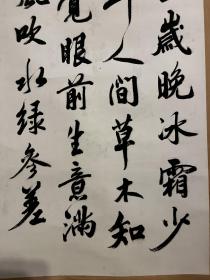 歲晚冰霜少
人間草木知
眼前生意滿
吹水綠參差